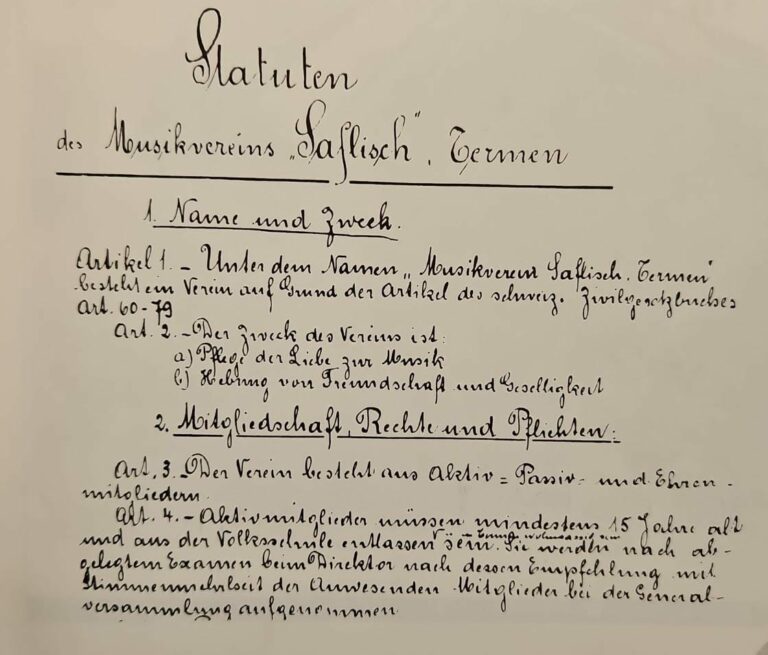 Statuten
des Musikvereins „Saflisch", Termen
1. Name und Zweck.
Artikel 1. - Unter dem Namen „Musikverein Saflisch. Termen"
besteht ein Verein auf Grund der Artikel des schweiz. Zivilgesetzbuches
Art. 60-79
Art. 2. - Der Zweck des Vereins ist:
a) Pflege der Liebe zur Musik
b) Hebung von Freundschaft und Geselligkeit
2. Mitgliedschaft, Rechte und Pflichten:
Art. 3. Der Verein besteht aus Aktiv = Passiv- und Ehren-
mitgliedern.
Art. 4. - Aktivmitglieder müssen mindestens 15 Jahre alt
und aus der Volksschule entlassen sein. Sie werden nach ab-
gelegtem Examen beim Direktor nach dessen Empfehlung mit
Stimmenmehrheit der Anwesenden Mitglieder bei der General-
versammlung aufgenommen.